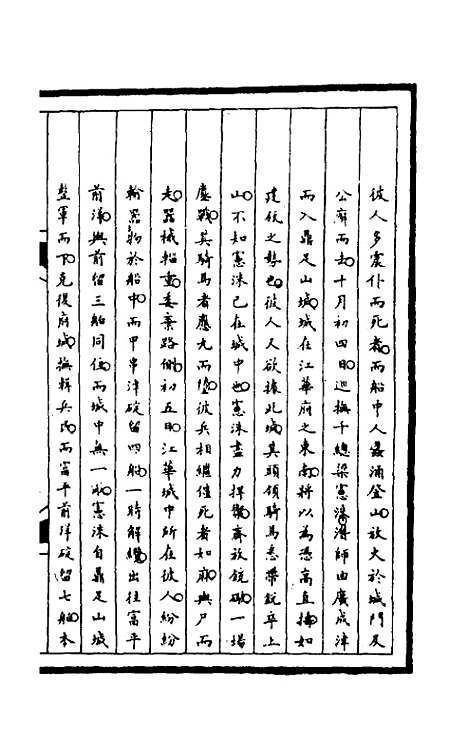 彼人多處仆而死者而船中人蟲涌登山放火於城門及
公廨而去十月初四日巡撫千總梁憲洙潛師由廣成津
而入鼎足山城城在江華府之東南將以為憑高直擣如
建瓴之勢也彼人又欲據此城其頭領騎馬悉帶銃卒上
山不知憲洙已在城中也憲洙盡力捍禦齊放銃礮一場
鏖戰其騎馬者應丸而墮彼兵相繼僵死者如麻與尸而
走器械輜重委棄路側初五日江華城中所在彼人紛紛
輸器物於船中而甲串津碇留四船一時解纜出往富平
前洋與前留三船同住而城中無一敵憲洙自鼎足山城
整軍而下克復府城撫輯兵民而富平前洋碇留七船本